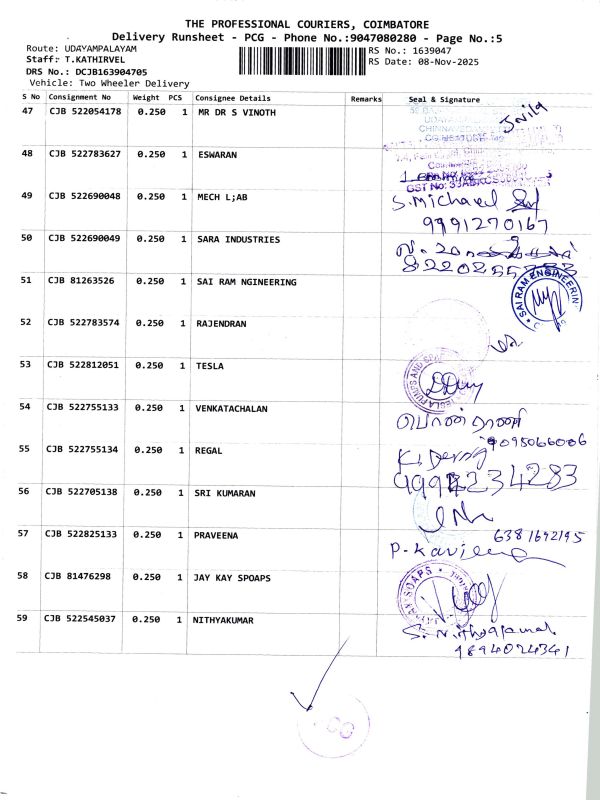 THE PROFESSIONAL COURIERS, COIMBATORE
Delivery Runsheet - PCG - Phone No.:9047080280 - Page No.:5
Route: UDAYAMPALAYAM
RS No.: 1639047
Staff: T.KATHIRVEL
RS Date: 08-Nov-2025
DRS No.: DCJB163904705
Vehicle: Two Wheeler Delivery
S No Consignment No Weight PCS Consignee Details Remarks Seal & Signature
47 CJB 522054178 0.250 1 MR DR S VINOTH
48 CJB 522783627 0.250 1 ESWARAN
GST No:
49 CJB 522690048 0.250 1 MECH L;AB S. Michael
9991270167
50 CJB 522690049 0.250 1 SARA INDUSTRIES
51 CJB 81263526 0.250 1 SAI RAM NGINEERING SAI RAM ENGINEERING
52 CJB 522783574 0.250 1 RAJENDRAN
53 CJB 522812051 0.250 1 TESLA
TESLA PUMPS AND
54 CJB 522755133 0.250 1 VENKATACHALAN
9095066006
55 CJB 522755134 0.250 1 REGAL
56 CJB 522705138 0.250 1 SRI KUMARAN
57 CJB 522825133 0.250 1 PRAVEENA 6381692195
P. Kaviena
58 CJB 81476298 0.250 1 JAY KAY SPOAPS
KAY SOAPS
59 CJB 522545037 0.250 1 NITHYAKUMAR
9894024341